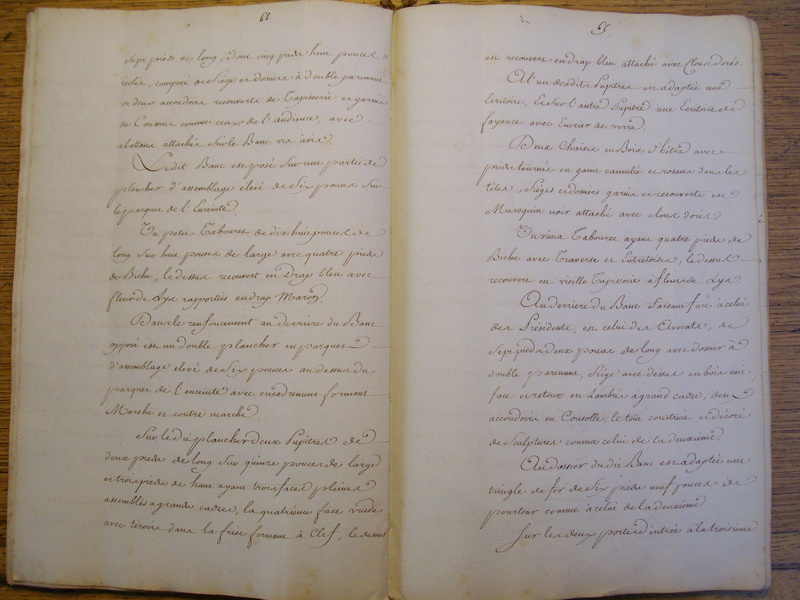 64
Sept pieds de long, dont cinq pieds huit pouces
isolés, composé de Siège et dossiers à double parement
et deux accoudoirs recouverts de Tapisserie et garnis
de Coussins comme ceux de l'audience, avec
attachés sur le Banc vis à vis.
Ledit Banc est posé Sur une partie de
plancher d'assemblage élevé de Six pouces Sur
le parquet de l'Enceinte.
Un petit Tabouret de dix huit pouces de
long Sur huit pouces de large avec quatre pieds
de Biche, le dessus recouvert en Drap bleu avec
fleurs de Lys rapportés en drap Maron
Dans le renfoncement au derriere du Banc
opposé est un double plancher en parquet
d'assemblage elevé de Six pouces au dessus du
parquet de l'enceinte avec encadrement formant
Marche et contre marche.
Sur le dit plancher deux Pupitres de
deux pieds de long Sur quinze pouces de large
et trois pieds de haut ayant trois faces pleines
assemblés à grands cadres, la quatrieme face vuide
avec tiroirs dans la frise fermant à Clef, le dessus
65
est recouvert en drap bleu attaché avec Clous dorés
A l'un desdits Pupitres est adaptée une
Ecritoire, Et sur l'autre Pupitre une Ecritoire de
fayance avec Encrier de verre.
Deux Chaises en Bois d'hêtre avec
pieds tournés en gaine cannelés et rosaces dans les
têtes, Sièges et dossiers garnis et recouverts en
Maroquin noir attaché avec clous dorés
Un vieux Tabouret ayant quatre pieds de
Biche avec Traverse et Entretoises, le dessus
recouvert en vieille Tapisserie à fleurs de Lys.
Au derriere du Banc faisant face à celui
des Présidents, est celui des Avocats, de
Sept pieds deux pouces de long avec dossier à
double parement, Siège avec dessus en bois uni
face et retour en Lambris à grand cadre, deux
accoudoirs en Consolle, le tout construit et décoré
de Sculptures comme celui de la deuxieme.
Au dossier du dit Banc est adaptée une
tringle de fer de Six pieds neuf pouces de
pourtour comme à celui de la deuxieme
Sur les deux portes d'entrée à la troisieme